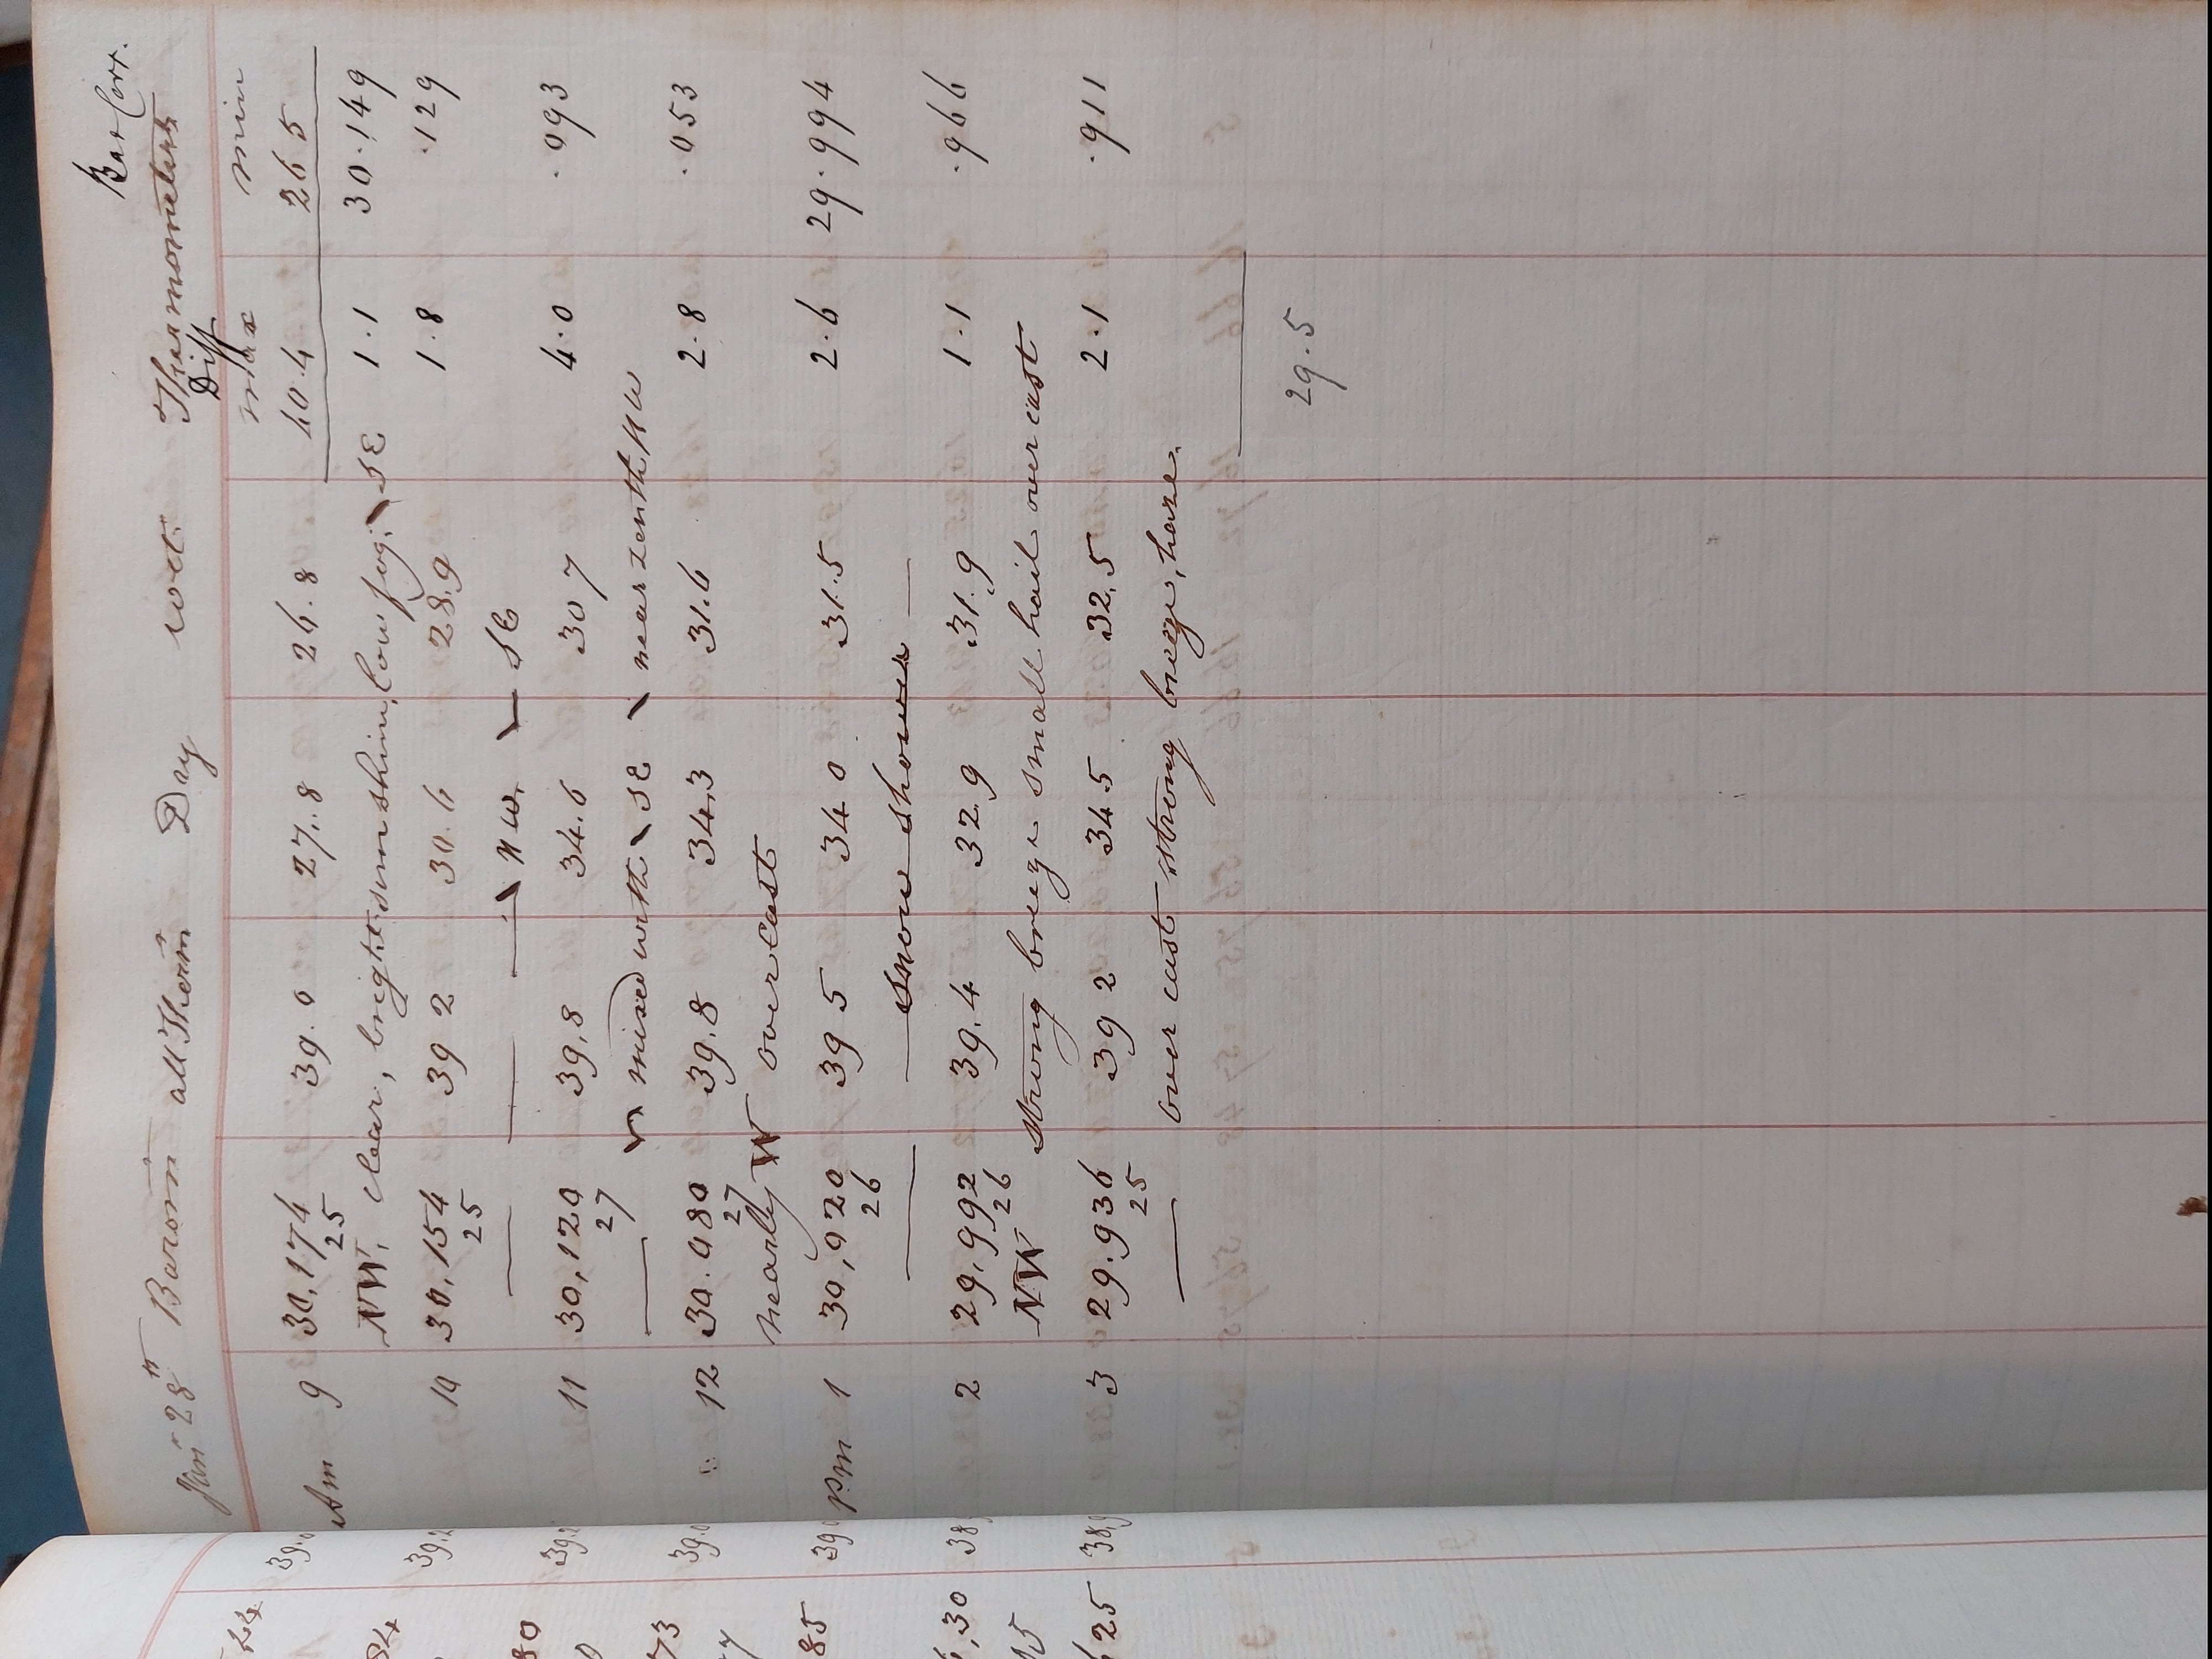 Bar Corr.
Janr 28th Baromr att Thermr Dry wet Thermometers
Diff
max min
Am 9 30,174 39.0 27.8 26.8 40.4 26 5
25
NW, clear, bright sun shine, low fog, \ SE 1.1 30.149
10 30,154 39 2 30.6 28.9 1.8 .129
25
— — — \ NW. \ — SE
11 30,120 39,8 34.6 30 7 4.0 .093
27
— mixed with \ SE \ near zenth NW
" 12 30.080 39.8 34.3 31.6 2.8 .053
27
nearly W over cast
Pm 1 30,020 39 5 34 0 31.5 2.6 29.994
26
— — snow shower —
2 29,992 39.4 32.9 31.9 1.1 .966
26
NW strong breeze small hail over cast
3 29.936 39 2 34.5 32.5 2.1 .911
25
— over cast strong breeze, haze.
29.5
24
39.0
84
39.2
80
39.2
0
73
39.0
7
85
39
,30 38
15
25 38,9